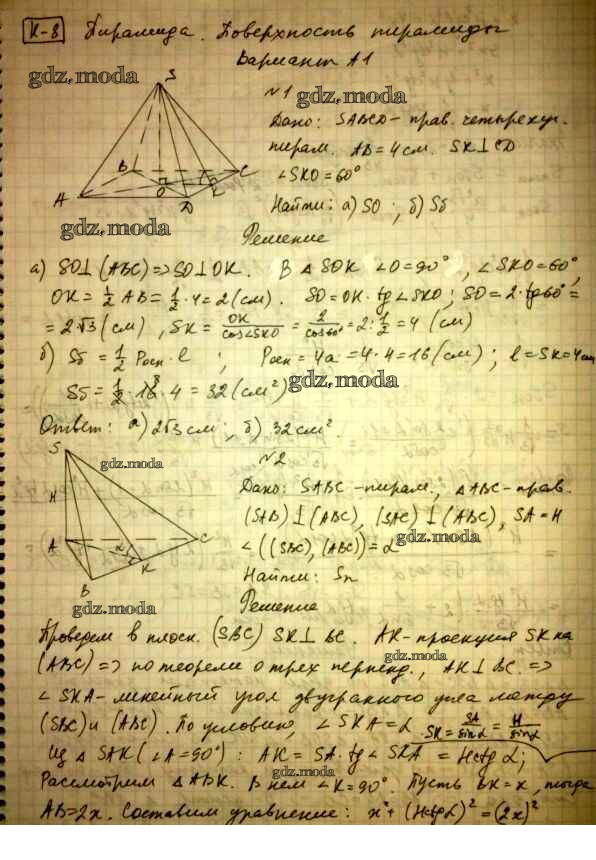 К-8 Пирамида. Поверхность пирамиды
Вариант А1
gdz.moda
№1
gdz.moda
Дано: SABCD – прав. четырехуг.
пирам. AB = 4 см. SK ⊥ CD
∠SKO = 60°
Найти: а) SO ; б) Sб
gdz.moda
Решение
S
B
C
A
O
K
D
а) SO⊥(ABC) => SO⊥OK. В △SOK ∠O=90°, ∠SKO=60°,
OK = 1/2 AB = 1/2 · 4 = 2 (см). SO = OK · tg∠SKO ; SO = 2 · tg60° =
= 2√3 (см) , SK = OK/cos∠SKO = 2/cos60° = 2 : 1/2 = 4 (см)
б) Sб = 1/2 Pосн · l ; Pосн = 4a = 4·4 = 16 (см) ; l = SK = 4 см
gdz.moda
Sб = 1/2 · 16 · 4 = 32 (см²)
Ответ: а) 2√3 см ; б) 32 см².
№2
S
H
A
α
C
K
B
gdz.moda
Дано: SABC – пирам., △ABC – прав.
(SAB)⊥(ABC), (SAC)⊥(ABC), SA = H
gdz.moda
∠((SBC), (ABC)) = α
Найти: Sп
gdz.moda
Решение
Проведем в плоск. (SBC) SK⊥BC. AK – проекция SK на
gdz.moda
(ABC) => по теореме о трех перпенд., AK⊥BC. =>
∠SKA – линейный угол двугранного угла между
(SBC) и (ABC). По условию, ∠SKA = α SK = SA/sinα = H/sinα
Из △SAK (∠A = 90°) : AK = SA · tg∠SKA = Hctgα;
gdz.moda
Рассмотрим △ABK. В нем ∠K = 90°. Пусть BK = x, тогда
AB = 2x. Составим уравнение: x² + (Hctgα)² = (2x)²